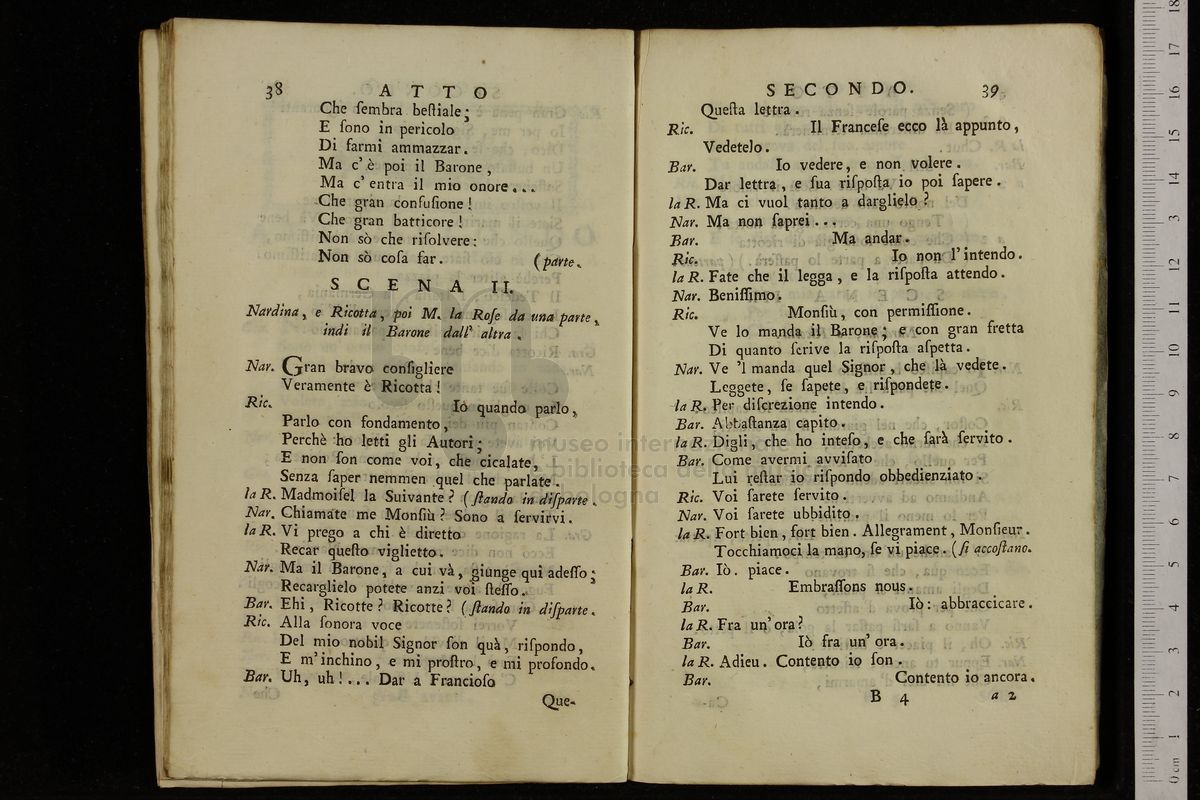 38 ATTO
Che ſembra beſtiale;
E ſono in pericolo
Di farmi ammazzar.
Ma c' è poi il Barone,
Ma c' entra il mio onore...
Che gran confuſione!
Che gran batticore!
Non sò che riſolvere:
Non sò coſa far. (parte.
SCENA II.
Nardina, e Ricotta, poi M. la Roſe da una parte,
indi il Barone dall' altra.
Nar. Gran bravo conſigliere
Veramente è Ricotta!
Ric. Iò quando parlo,
Parlo con fondamento,
Perchè ho letti gli Autori;
E non ſon come voi, che cicalate,
Senza ſaper nemmen quel che parlate.
la R. Madmoiſel la Suivante? (ſtando in diſparte.
Nar. Chiamate me Monſiù? Sono a ſervirvi.
la R. Vi prego a chi è diretto
Recar queſto viglietto.
Nar. Ma il Barone, a cui và, giunge qui adeſſo;
Recarglielo potete anzi voi ſteſſo.
Bar. Ehi, Ricotte? Ricotte? (ſtando in diſparte.
Ric. Alla ſonora voce
Del mio nobil Signor ſon quà, riſpondo,
E m' inchino, e mi proſtro, e mi profondo.
Bar. Uh, uh!... Dar a Francioſo
Que-
SECONDO. 39
Queſta lettra.
Ric. Il Franceſe ecco là appunto,
Vedetelo.
Bar. Io vedere, e non volere.
Dar lettra, e ſua riſpoſta io poi ſapere.
la R. Ma ci vuol tanto a darglielo?
Nar. Ma non ſaprei...
Bar. Ma andar.
Ric. Io non l' intendo.
la R. Fate che il legga, e la riſpoſta attendo.
Nar. Beniſſimo.
Ric. Monſiù, con permiſſione.
Ve lo manda il Barone; e con gran fretta
Di quanto ſcrive la riſpoſta aſpetta.
Nar. Ve 'l manda quel Signor, che là vedete.
Leggete, ſe ſapete, e riſpondete.
la R. Per diſcrezione intendo.
Bar. Abbaſtanza capito.
la R. Digli, che ho inteſo, e che ſarà ſervito.
Bar. Come avermi avviſato
Lui reſtar io riſpondo obbedienziato.
Ric. Voi ſarete ſervito.
Nar. Voi ſarete ubbidito.
la R. Fort bien, fort bien. Allegrament, Monſieur.
Tocchiamoci la mano, ſe vi piace. (ſi accoſtano.
Bar. Iò. piace.
la R. Embraſſons nous.
Bar. Iò: abbraccicare.
la R. Fra un' ora?
Bar. Iò fra un' ora.
la R. Adieu. Contento io ſon.
Bar. Contento io ancora.
B 4 a 2
museo internazionale
biblioteca della musica
bologna